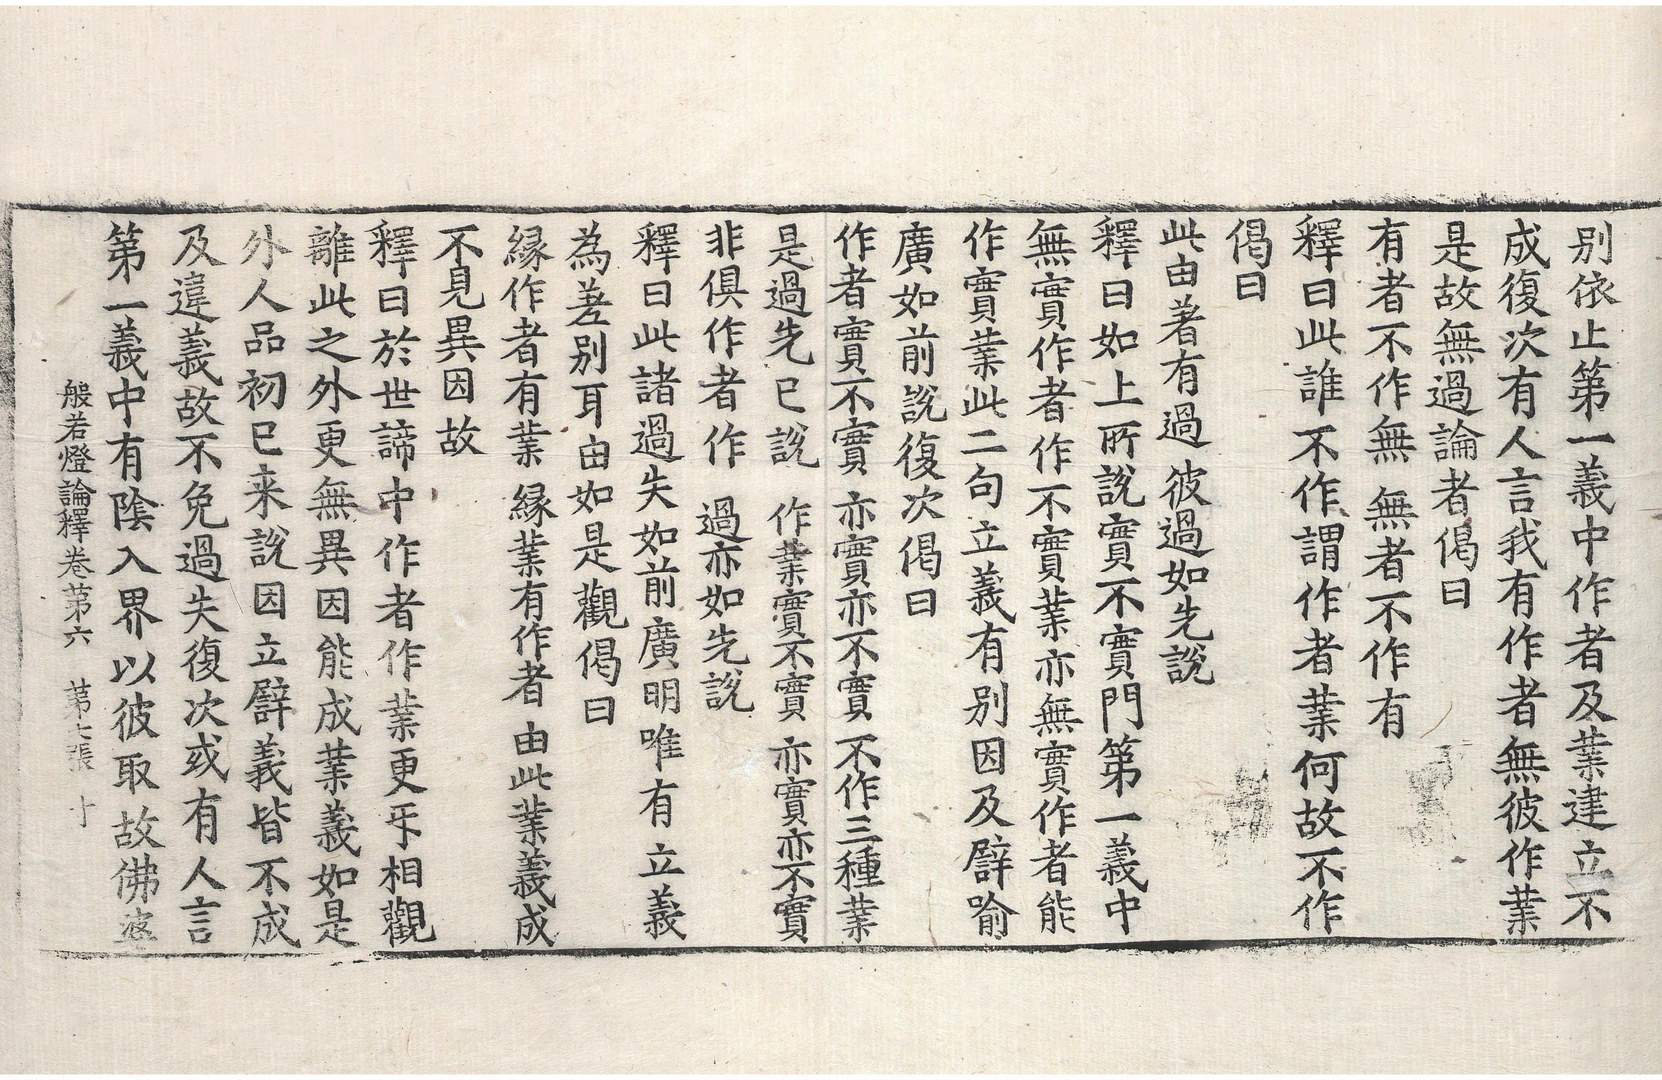 別依止第一義中作者及業建立不
成復次有人言我有作者無彼作業
是故無過論者偈曰
有者不作無 無者不作有
釋曰此誰不作謂作者業何故不作
偈曰
此由著有過 彼過如先說
釋曰如上所說實不實門第一義中
無實作者作不實業亦無實作者能
作實業此二句立義有別因及譬喻
廣如前說復次偈曰
作者實不實 亦實亦不實 不作三種業
是過先已說 作業實不實 亦實亦不實
非俱作者作 過亦如先說
釋曰此諸過失如前廣明唯有立義
為差別耳由如是觀偈曰
緣作者有業 緣業有作者 由此業義成
不見異因故
釋曰於世諦中作者作業更互相觀
離此之外更無異因能成業義如是
外人品初已来說因立譬義皆不成
及違義故不免過失復次或有人言
第一義中有陰入界以彼取故佛婆
般若燈論釋卷第六 第七張 十